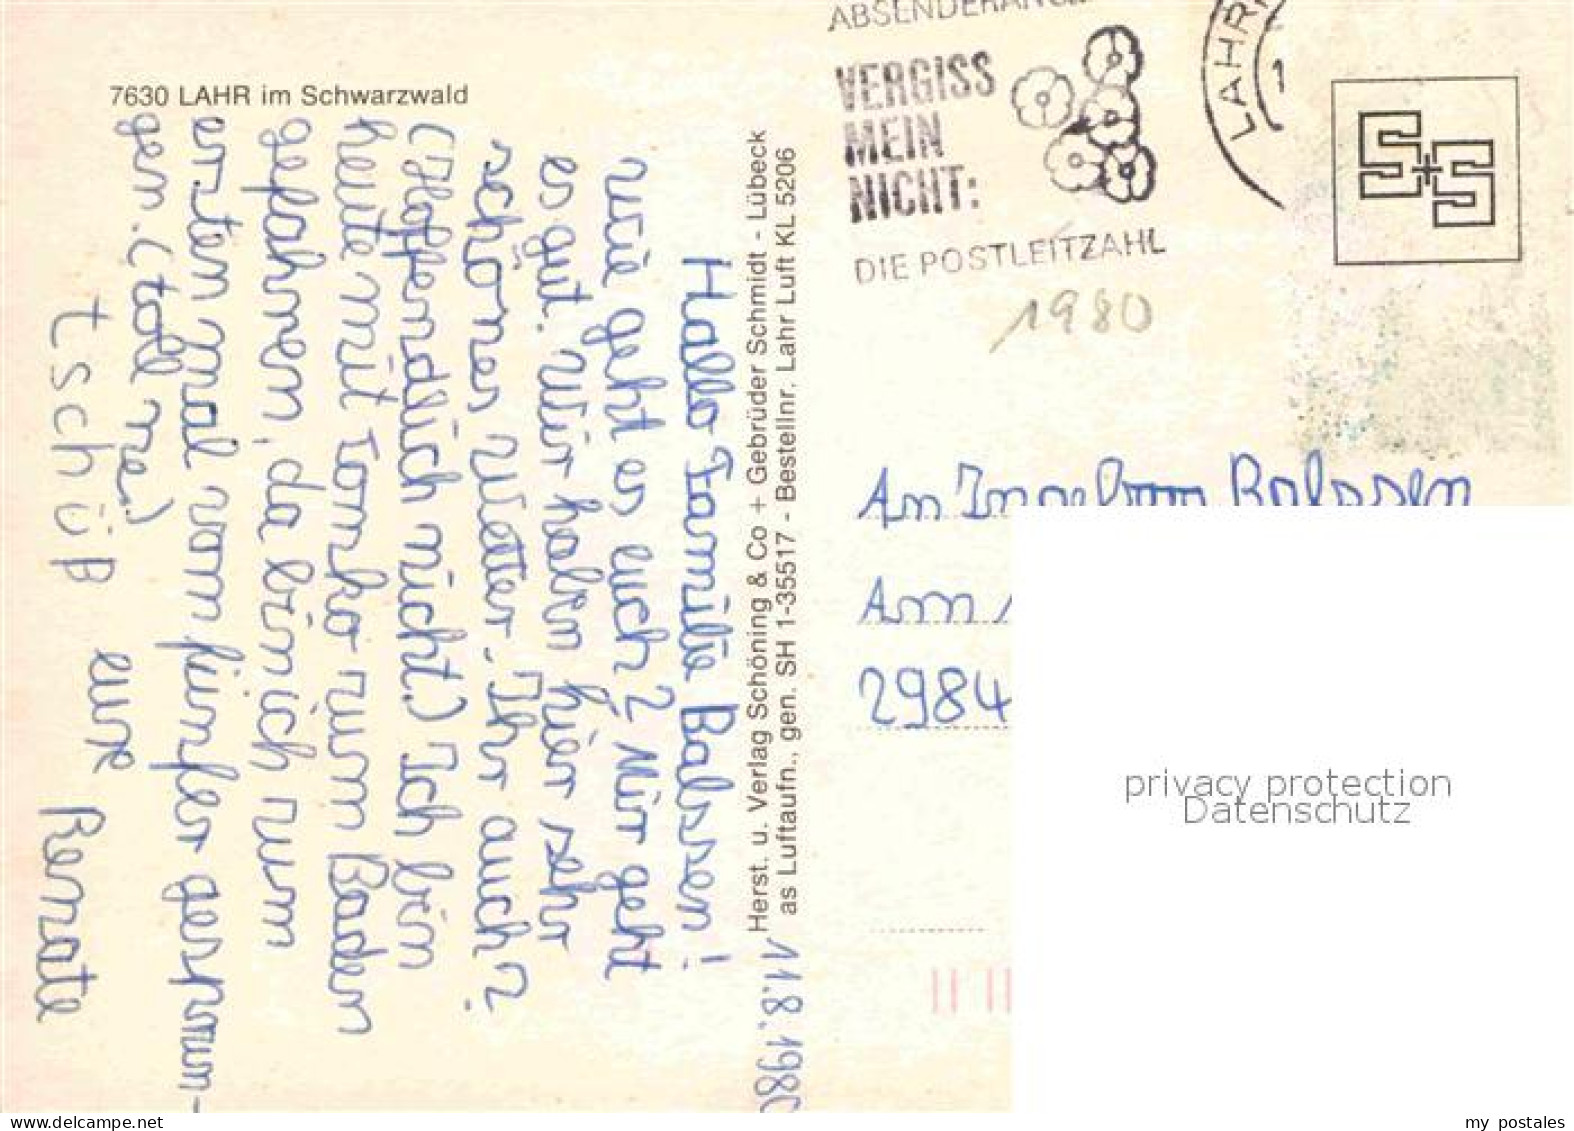 7630 LAHR im Schwarzwald
11.8.1980
Hallo Familie Balssen!
wie geht es euch? Mir geht
es gut. Wir haben hier sehr
schönes Wetter. Ihr auch?
(Hoffendlich nicht.) Ich bin
heute mit zum Baden
gefahren, da bin ich zum
ersten mal vom fünfer gesprun-
gen. (toll ne)
tschüß eure Renate
Herst. u. Verlag Schöning & Co + Gebrüder Schmidt - Lübeck
as Luftaufn., gen. SH 1-35517 - Bestellnr. Lahr Luft KL 5206
VERGISS
MEIN
NICHT:
DIE POSTLEITZAHL
LAHR
1
S+S
1980
An Ingeborg Balssen
Am
2984
privacy protection
Datenschutz
www.delcampe.net
my_postales